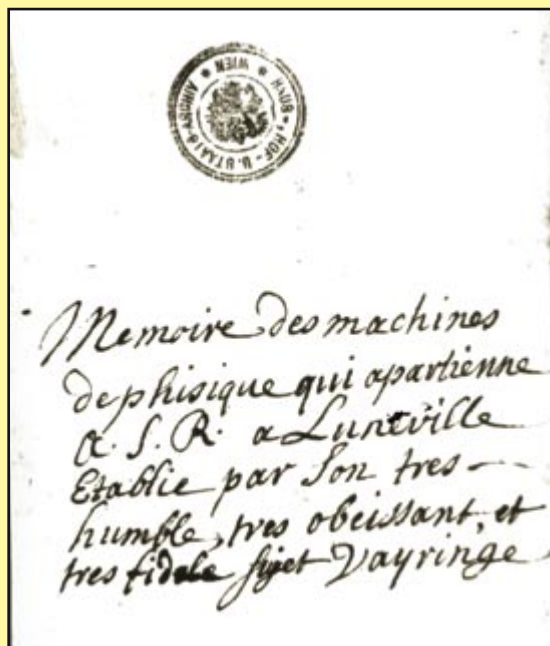 HAUS-, HOF- U. STAATS-ARCHIV * WIEN *
Memoire des machines
de phisique qui apartienne
A. S. R. a Luneville
Etablie par Son tres
humble, tres obeissant, et
tres fidele sujet Vayringe